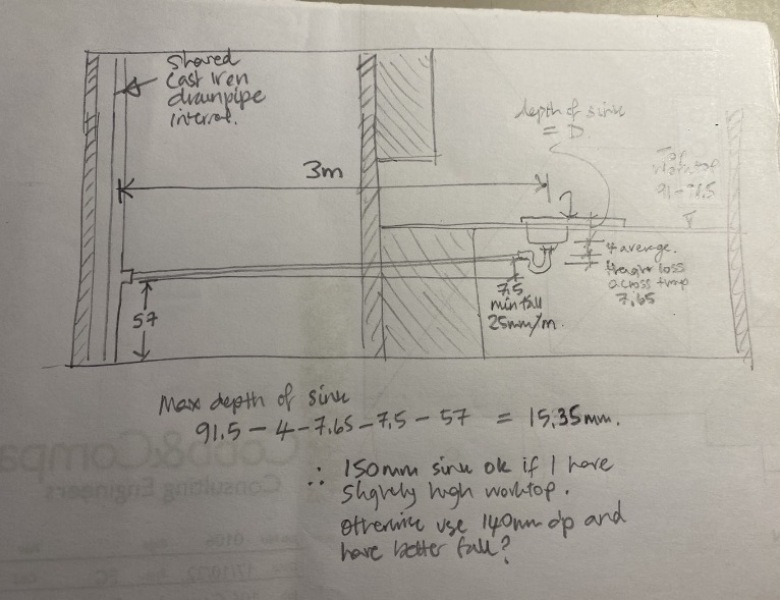 Shared
cast iron
drainpipe
internal.
depth of sink
= D
3m
Top
worktop
91-91.5
4 average.
loss
across trap
7.65
7.5
min fall
25mm/m.
57
Max depth of sink
91.5 - 4 - 7.65 - 7.5 - 57 = 15.35mm.
∴ 150mm sink ok if I have
slightly high worktop.
otherwise use 140mm dp and
have better fall?
Cobb&Compa
Consulting Engineers
0106
17/10/22